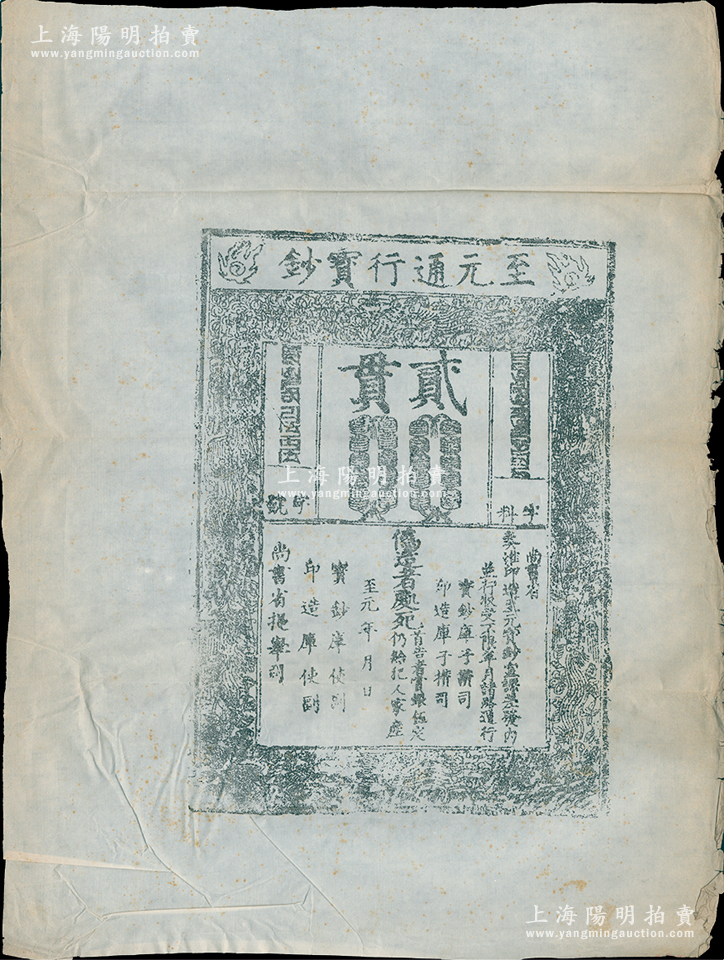 上海陽明拍賣
www.yangmingauction.com
至元通行寶鈔
貳貫
字料
字號
上海陽明拍賣
www.yangmingauction.com
尚書省
奏准印造至元寶鈔宣課差發內
並行收受不限年月諸路通行
寶鈔庫子攢司
印造庫子攢司
偽造者處死首告者賞銀伍定
仍給犯人家產
至元年月日
寶鈔庫使副
印造庫使副
尚書省提舉司
上海陽明拍賣
www.yangmingauction.com